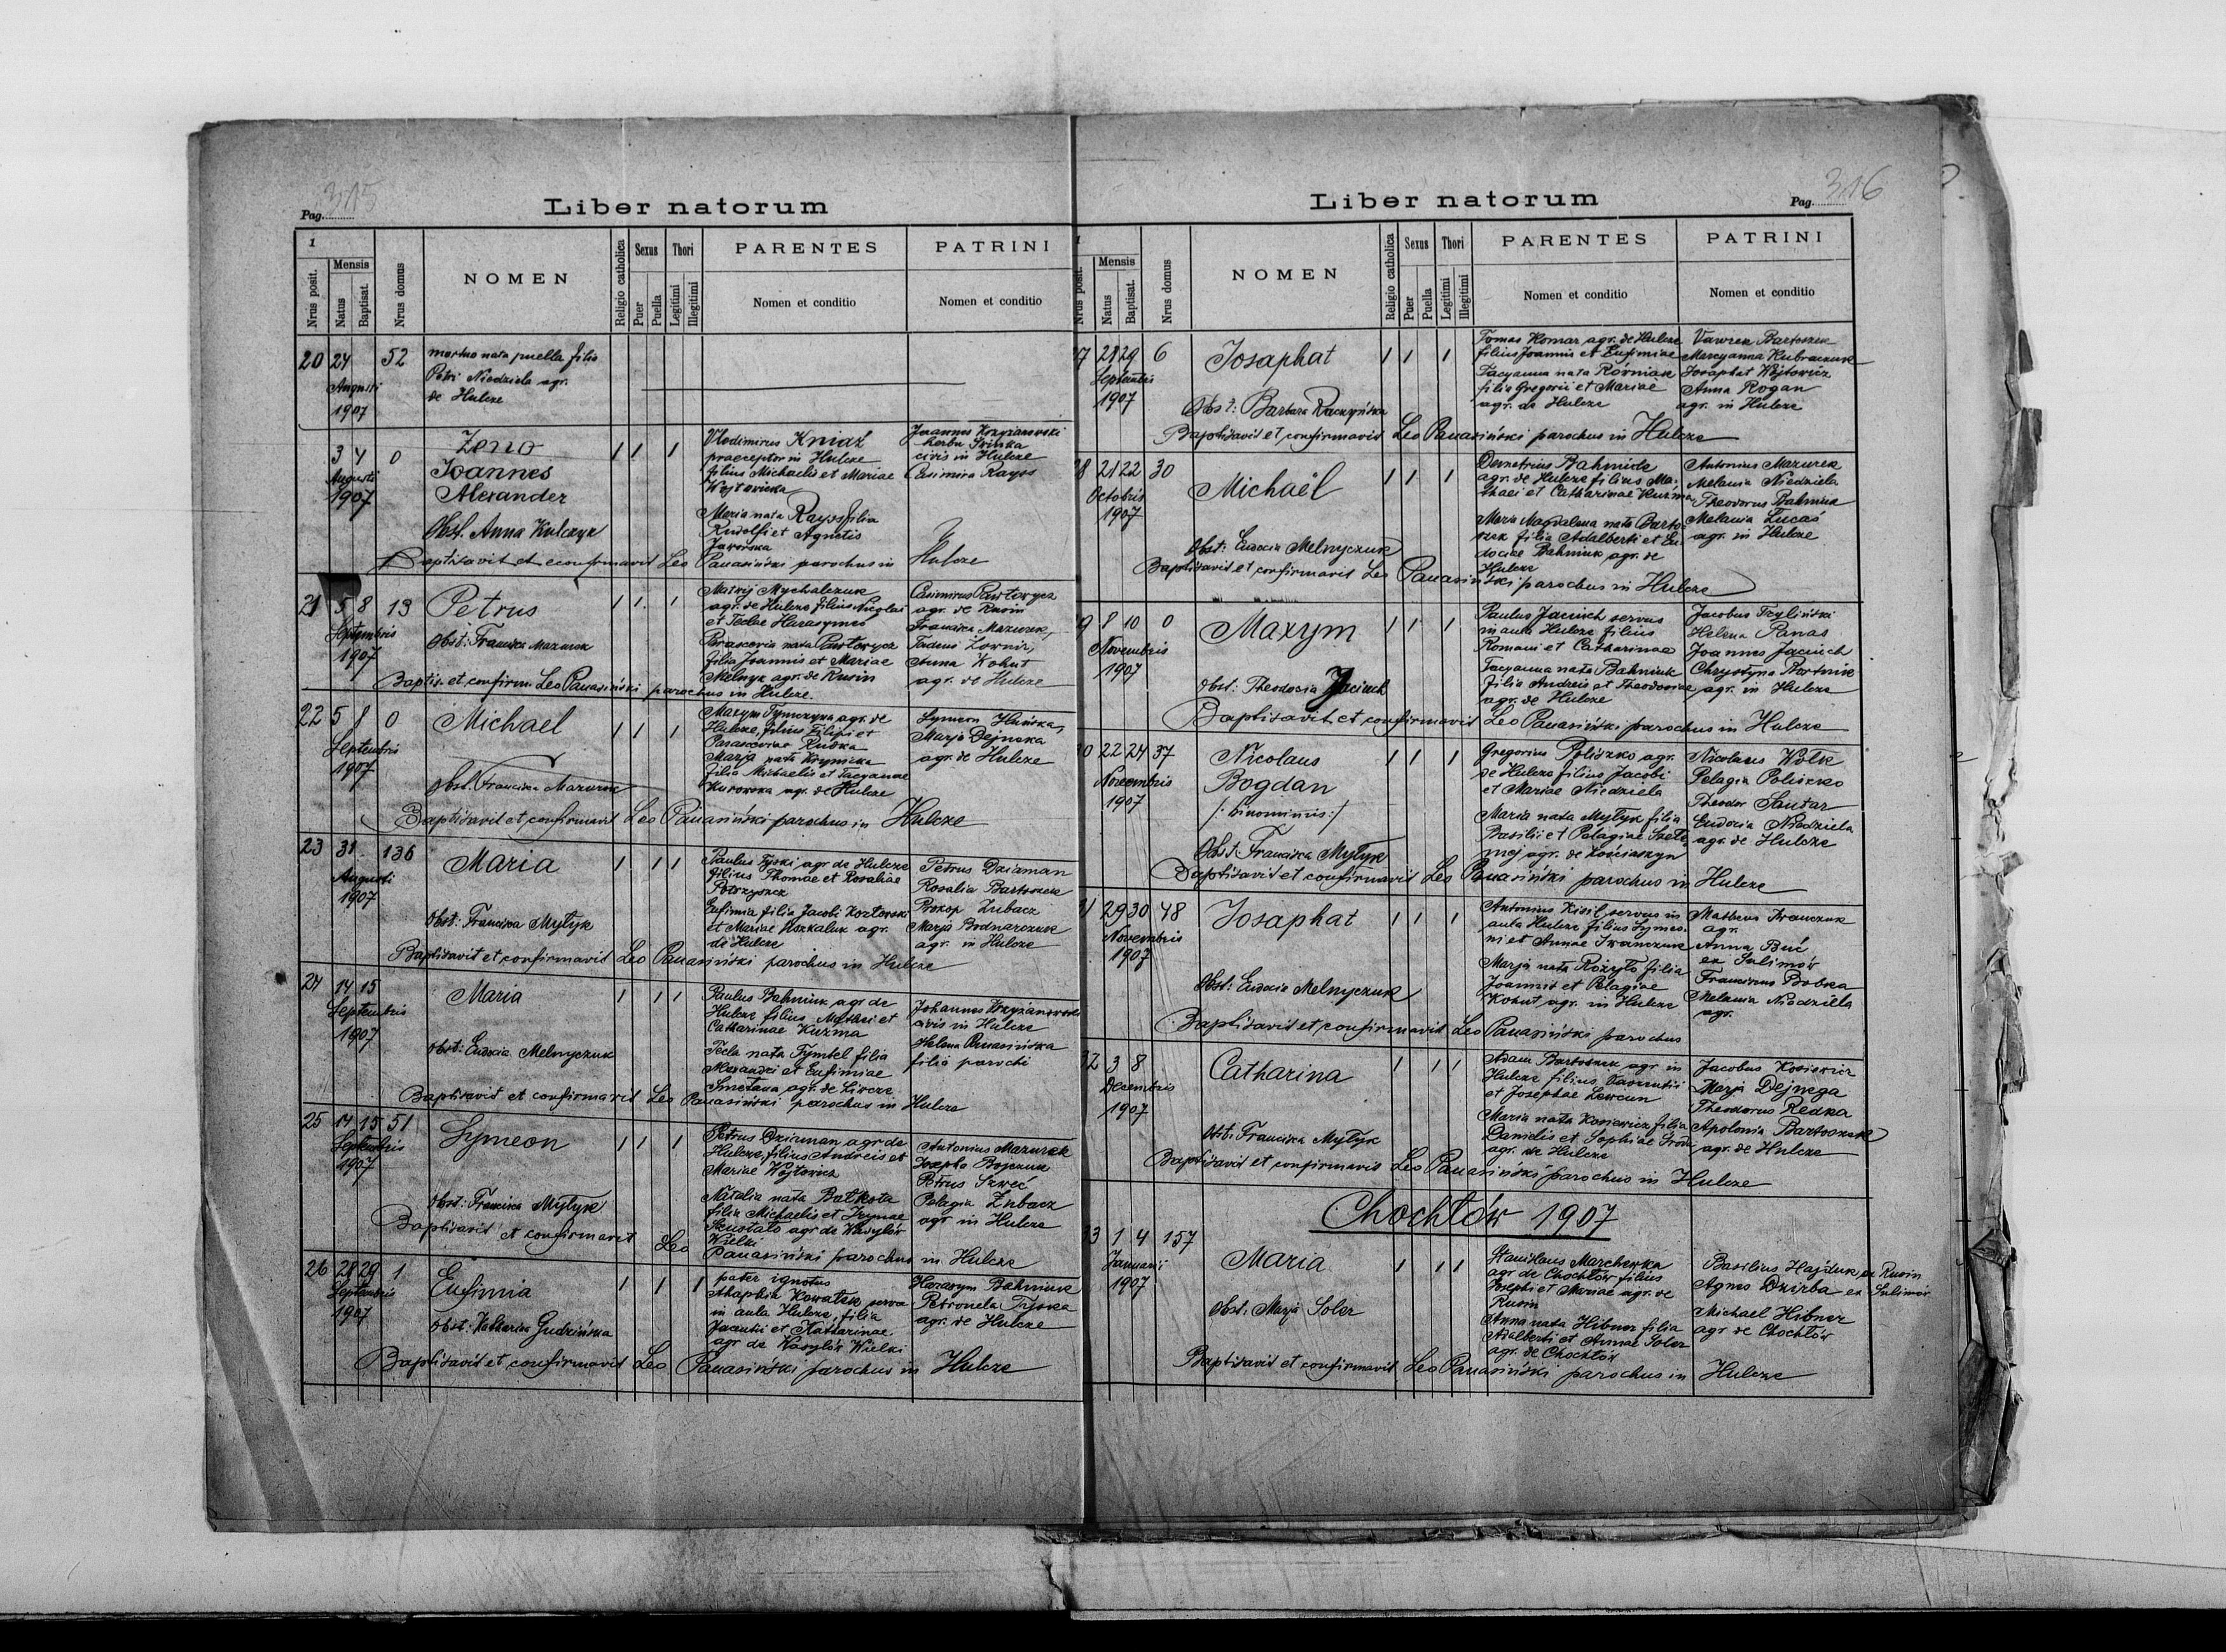 315
Pag.
Liber natorum
1
Nrus posit.
Mensis
Natus
Baptisat.
Nrus domus
NOMEN
Religio catholica
Sexus
Puer
Puella
Thori
Legitimi
Illegitimi
PARENTES
Nomen et conditio
PATRINI
Nomen et conditio
20 24 52
Augusti
1907
mortuo nata puella filia
Petri Niedziela agr.
de Hulcze
3 4 0
Augusti
1907
Zeno
Joannes
Alexander
Obst. Anna Kulczyk
1 1 1
Vlodimirus Kniaź
praeceptor in Hulcze
filius Michaelis et Mariae
Wojtowicka
Maria nata Rayss filia
Rudolfi et Agnetis
Jaworska
Joannes Krzyżanowski
herbu Świnka
civis in Hulcze
Casimira Rayss
Baptisavit et confirmavit Leo Panasiński parochus in Hulcze
21 5 8 13
Septembris
1907
Petrus
Obst: Francisca Mazurek
1 1 1
Matwij Mychalczuk
agr. de Hulcze filius Nicolai
et Teclae Harasymes
Parascevia nata Pawłowycz
filia Joannis et Mariae
Melnyk agr. de Rusin
Casimirus Pawłowycz
agr. de Rusin
Francisca Mazurek,
Tadeus Zownir,
Anna Kohut
agr. de Hulcze
Baptis. et confirm. Leo Panasiński parochus in Hulcze.
22 5 8 0
Septembris
1907
Michael
Obst. Francisca Mazurek
1 1 1
Maxym Tymczyna agr. de
Hulcze, filius Filipi et
Parasceviae Ruska
Marja nata Krynicka
filia Michaelis et Tacyanae
Kurowska agr. de Hulcze
Symeon
Marja Dejneka
agr. de Hulcze
Baptisavit et confirmavit Leo Panasiński parochus in Hulcze
23 31 136
Augusti
1907
Maria
Obst: Francisca Mytyk
1 1 1
Paulus Tyski agr de Hulcze
filius Thomae et Rosaliae
Pietrzyszcz
Eufimia filia Jacobi Kozłowski
et Mariae Uszkaluk agr.
de Hulcze
Petrus Dziaman
Rosalia Bartoszek
Prokop Zubacz
Marja Bodnarczuk
agr. in Hulcze
Baptisavit et confirmavit Leo Panasiński parochus in Hulcze
24 14 15
Septembris
1907
Maria
Obst: Eudocia Melnyczuk
1 1 1
Paulus Bahniuk agr de
Hulcze filius Mathei et
Catharinae Kuzma
Tecla nata Tymbel filia
Alexandri et Eufimiae
Smetana agr. de Liwcze
Johannes Krzyżanowski
civis in Hulcze
Helena Panasińska
filia parochi
Baptisavit et confirmavit Leo Panasiński parochus in Hulcze
25 14 15 51
Septembris
1907
Symeon
Obst: Francisca Mytyk
1 1 1
Petrus Dziaman agr de
Hulcze, filius Andreis et
Mariae Wojtowicz
Natalia nata Bałkota
filia Michaelis et Irynae
Szustało agr de Wasylów
Wielki
Antonius Mazurek
Josepha Bojczuk
Petrus Szweć
Pelagia Zubacz
agr in Hulcze
Baptisavit et confirmavit Leo Panasiński parochus in Hulcze
26 28 29 1
Septembris
1907
Eufimia
Obst: Katharina Gudzińska
1 1 1
pater ignotus
Ahaphia Kowałek serva
in aula Hulcze, filia
Jacentii et Katharinae
agr de Wasylów Wielki
Harasym Bahniuk
Petronela Tyska
agr. de Hulcze
Baptisavit et confirmavit Leo Panasiński parochus in Hulcze
316
Pag.
Liber natorum
1
Nrus posit.
Mensis
Natus
Baptisat.
Nrus domus
NOMEN
Religio catholica
Sexus
Puer
Puella
Thori
Legitimi
Illegitimi
PARENTES
Nomen et conditio
PATRINI
Nomen et conditio
7 28 29 6
Septembris
1907
Josaphat
Obst: Barbara Raczyńska
1 1 1
Tomas Komar agr. de Hulcze
filius Joannis et Eufimiae
Tacyanna nata Rowniak
filia Gregorii et Mariae
agr. de Hulcze
Vawrek Bartoszek
Marcyanna Kubraczuk
Josaphat Wojtowicz
Anna Rogan
agr. in Hulcze
Baptisavit et confirmavit Leo Panasiński parochus in Hulcze
8 21 22 30
Octobris
1907
Michaël
Obst: Eudocia Melnyczuk
1 1 1
Demetrius Bahniuk
agr. de Hulcze filius Ma-
thaei et Catharinae Kuzma
Maria Magdalena nata Barto-
szek filia Adalberti et Eu-
dociae Bahniuk agr. de
Hulcze
Antonius Mazurek
Melania Niedziela
Theodorus Bahniuk
Melania Lucas
agr. in Hulcze
Baptisavit et confirmavit Leo Panasiński parochus in Hulcze
9 8 10 0
Novembris
1907
Maxym
Obst: Theodosia Jaciuch
1 1 1
Paulus Jaciuch servus
in aula Hulcze filius
Romani et Catharinae
Tacyanna nata Bahniuk
filia Andreis et Theodosiae
agr. de Hulcze
Jacobus Tryliński
Helena Panas
Joannes Jaciuch
Chrystyna Bortnik
agr. in Hulcze
Baptisavit et confirmavit Leo Panasiński parochus in Hulcze
0 22 24 37
Novembris
1907
Nicolaus
Bogdan
/: binominis :/
Obst: Francisca Mytyk
1 1 1
Gregorius Poliszko agr.
de Hulcze filius Jacobi
et Mariae Niedziela
Maria nata Mytyk filia
Basilii et Pelagiae Szele-
mej agr. de Kościaszyn
Nicolaus Wołk
Pelagia Poliszko
Theodor Sautar
Eudocia Niedziela
agr. de Hulcze
Baptisavit et confirmavit Leo Panasiński parochus in Hulcze
1 29 30 48
Novembris
1907
Josaphat
Obst: Eudocia Melnyczuk
1 1 1
Antonius Kisil servus in
aula Hulcze filius Symeo-
ni et Annae Iwanczuk
Marja nata Rożyło filia
Joannis et Pelagiae
Kohut agr. in Hulcze
Matheus Franczuk
agr.
Anna Buć
ex Sulimów
Franciscus Bobka
Melania Niedziela
agr.
Baptisavit et confirmavit Leo Panasiński parochus
32 3 8
Decembris
1907
Catharina
Obst: Francisca Mytyk
1 1 1
Adam Bartoszek agr in
Hulcze filius Laurentii
et Josephae Lewcun
Maria nata Kosiewicz filia
Danielis et Sophiae Środa
agr. de Hulcze
Jacobus Kosiewicz
Marja Dejnega
Theodorus Redka
Apolonia Bartoszek
agr. de Hulcze
Baptisavit et confirmavit Leo Panasiński parochus in Hulcze
Chochłów 1907
33 1 4 157
Januarii
1907
Maria
Obst: Marja Soler
1 1 1
Stanislaus Marchewka
agr de Chochłów filius
Josephi et Mariae agr. de
Rusin
Anna nata Hibner filia
Adalberti et Annae Soler
agr. de Chochłów
Basilius Hajduk ex Rusin
Agnes Dzirba ex Sulimów
Michael Hibner
agr de Chochłów
Baptisavit et confirmavit Leo Panasiński parochus in Hulcze